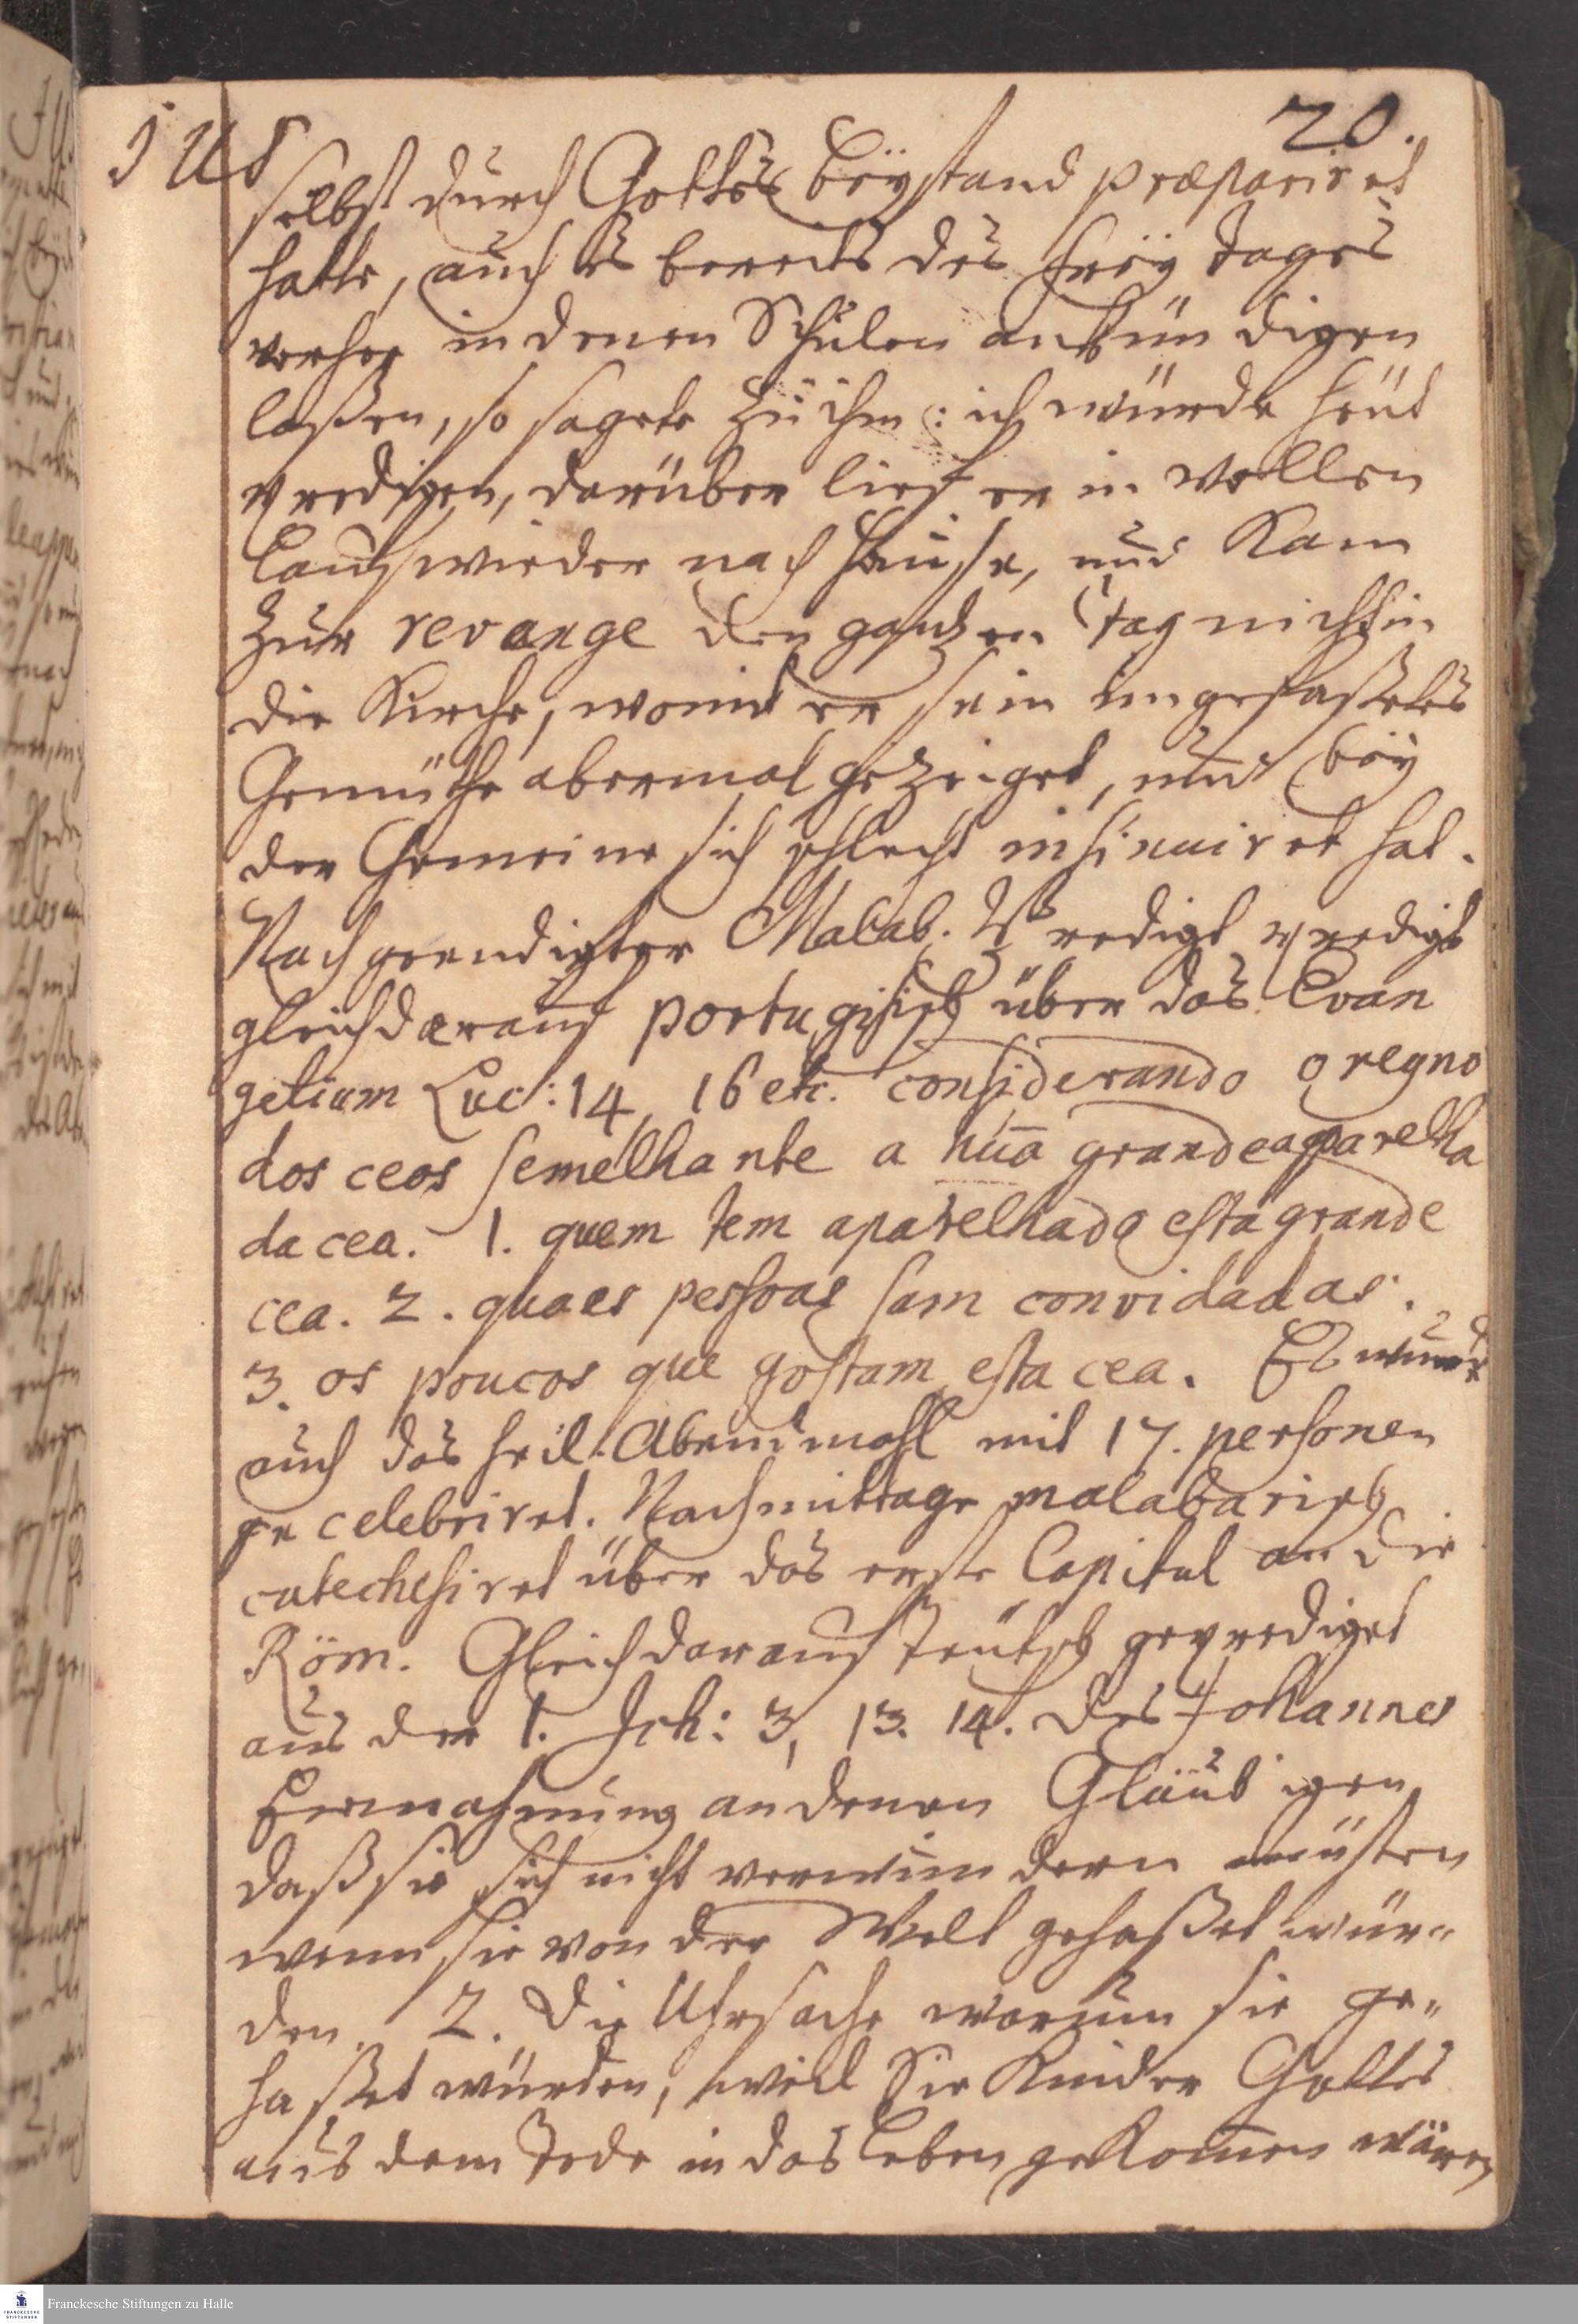 20.
J U S
selbst durch Gottes beystand præpariret
hatte, auch es bereits des Freytages
vorher in denen Schulen ankündigen
laßen, so sagete zu ihm: ich würde heüt
predigen, darüber lief er in vollen
Lauf wieder nach Hause, und kam
zur revange den gantzen tag nicht in
die Kirche, womit er sein ungefaßetes
Gemüthe abermal gezeiget, und bey
der Gemeine sich schlecht insinuiret hat.
Nach geendigter Malab. Predigt predigt
gleich darauf portugisisch über das Evan
gelium Luc: 14, 16 etc. considerando o regno
dos ceos semelhante a hũa grande aparelha
da cea. 1. quem tem aparelhado esta grande
cea. 2. quaes pessoas sam convidadas.
3. os poucos que gostam esta cea. Es wurde
auch das heil. Abendmahl mit 17. personen
ge celebriret. Nachmittage malabarisch
catechesiret über das erste Capitul an die
Röm. Gleich darauf teutsch geprediget
aus der 1. Joh: 3, 13. 14. des Johannes
Ermahnung an denen Gläubigen
daß sie sich nicht verwundern müsten
wenn sie von der Welt gehaßet wür-
den. 2. Die Uhrsache warum sie ge-
haßet würden, weil Sie Kinder Gottes
aus dem Tode in das Leben gekom̅en wären
Franckesche Stiftungen zu Halle